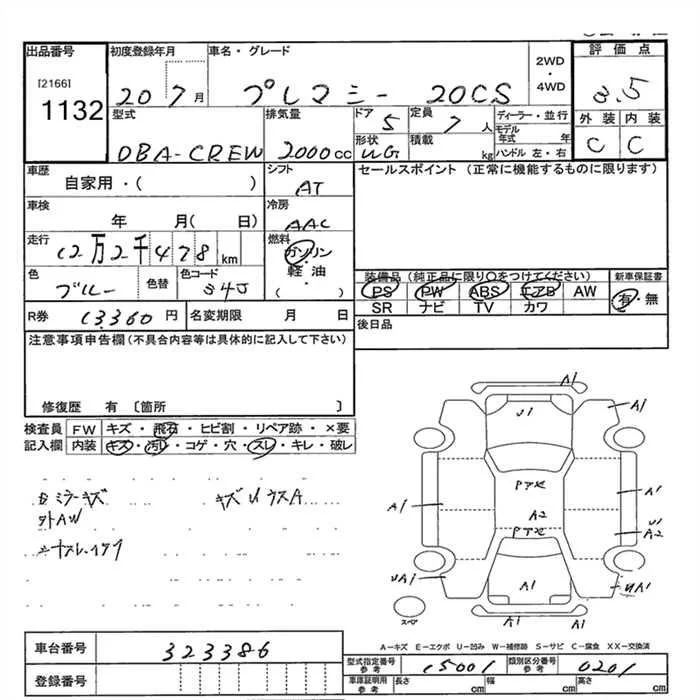 出品番号 初度登録年月 車名・グレード 評価点
[2166] 2WD・4WD
1132 20 7月 プレマシー 20CS 3.5
型式 排気量 ドア 5 定員 7人 ディーラー・並行 外装 内装
モデル年式 年
DBA-CREW 2000cc 形状 WG 積載 kg ハンドル 左・右 C C
車歴 シフト セールスポイント (正常に機能するものに限ります)
自家用・( ) AT
車検 冷房
年 月( 日) AAC
走行 12万2千478km 燃料
ガソリン・軽油・( )
色 ブルー 色替 色コード 34J
装備品(純正品に限り○をつけてください) 新車保証書
PS PW ABS エアB AW 有・無
SR ナビ TV カワ
R券 13,360円 名変期限 月 日 後日品
注意事項申告欄(不具合内容等は具体的に記入して下さい)
修復歴 有〔箇所 〕
検査員 FW キズ・飛石・ヒビ割・リペア跡・×要
記入欄 内装 キズ・汚レ・コゲ・穴・スレ・キレ・破レ
ミラーキズ
社外AW
A1
U1
A1
A1
A1
A2
U1
A2
UA1
A1
UA1
スペア
A1
A-キズ E-エクボ U-凹み W-補修跡 S-サビ C-腐食 XX-交換済
車台番号 323386
型式指定番号 参考 15001 類別区分番号 参考 0201
登録番号
車庫証明用 参考 長さ cm 幅 cm 高さ cm